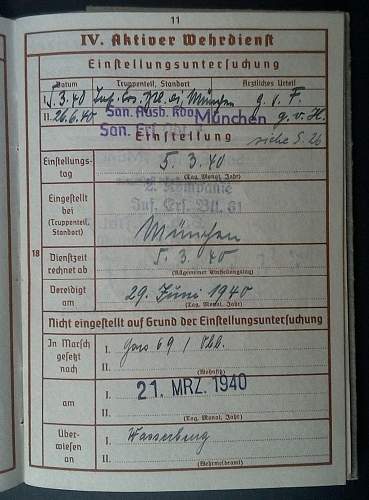 11
IV. Aktiver Wehrdienst
Einstellungsuntersuchung
Datum Truppenteil, Standort Ärztliches Urteil
I. 5.3.40 München g. v. F.
II. 26.6.40 San. Ausb. Kdo München g. v. H.
San.
Einstellung siehe S. 26
Einstellungs-
tag
5. 3. 40
(Tag, Monat, Jahr)
2. Kompanie
Inf. Ers. Btl. 61
Eingestellt
bei
(Truppenteil,
Standort)
München
18
Dienstzeit
rechnet ab
5. 3. 40
(Allgemeiner Einstellungstag)
Vereidigt
am
29. Juni 1940
(Tag, Monat, Jahr)
Nicht eingestellt auf Grund der Einstellungsuntersuchung
In Marsch
gesetzt
nach
I. Gars 69 / Obb.
II.
(Wohnsitz)
am
I. 21. MRZ. 1940
II.
(Tag, Monat, Jahr)
Über-
wiesen
an
I. Wasserburg
II.
(Wehrmeldeamt)